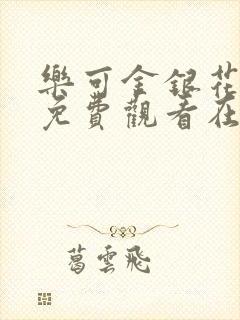 樂可金銀花
免費觀看在
葛雲飛